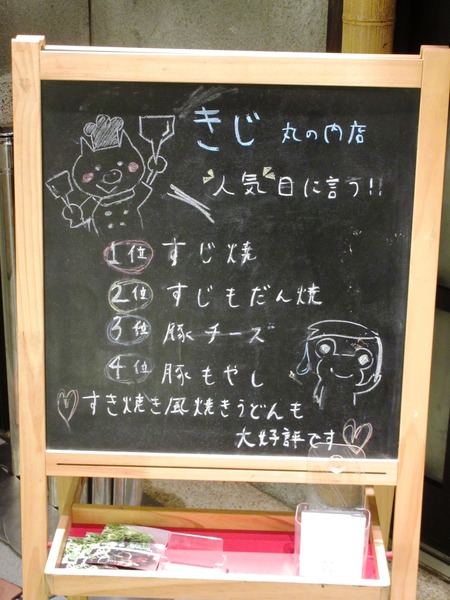 きじ 丸の内店
"人気"目に言う!!
1位 すじ焼
2位 すじもだん焼
3位 豚チーズ
4位 豚もやし
すき焼き風焼きうどんも
大好評です